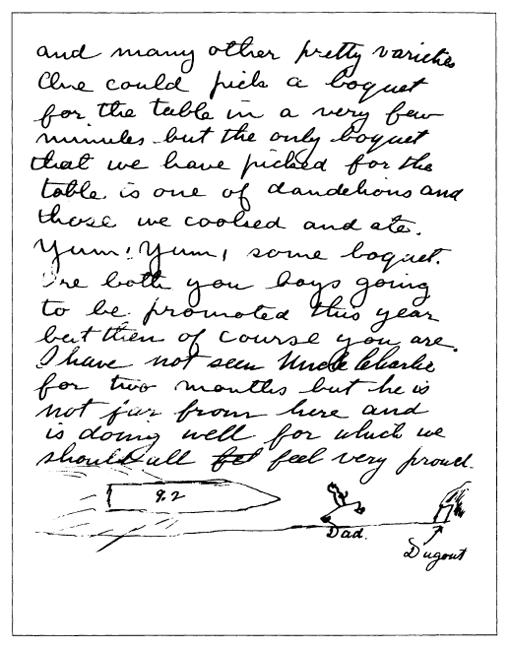 and many other pretty varieties
One could pick a boquet
for the table in a very few
minutes but the only boquet
that we have picked for the
table is one of dandelions and
those we cooked and ate.
Yum! Yum! some boquet.
Are both you boys going
to be promoted this year
but then of course you are.
I have not seen Uncle Charlie
for two months but he is
not far from here and
is doing well for which we
should all feel very proud.
9.2
Dad.
Dugout